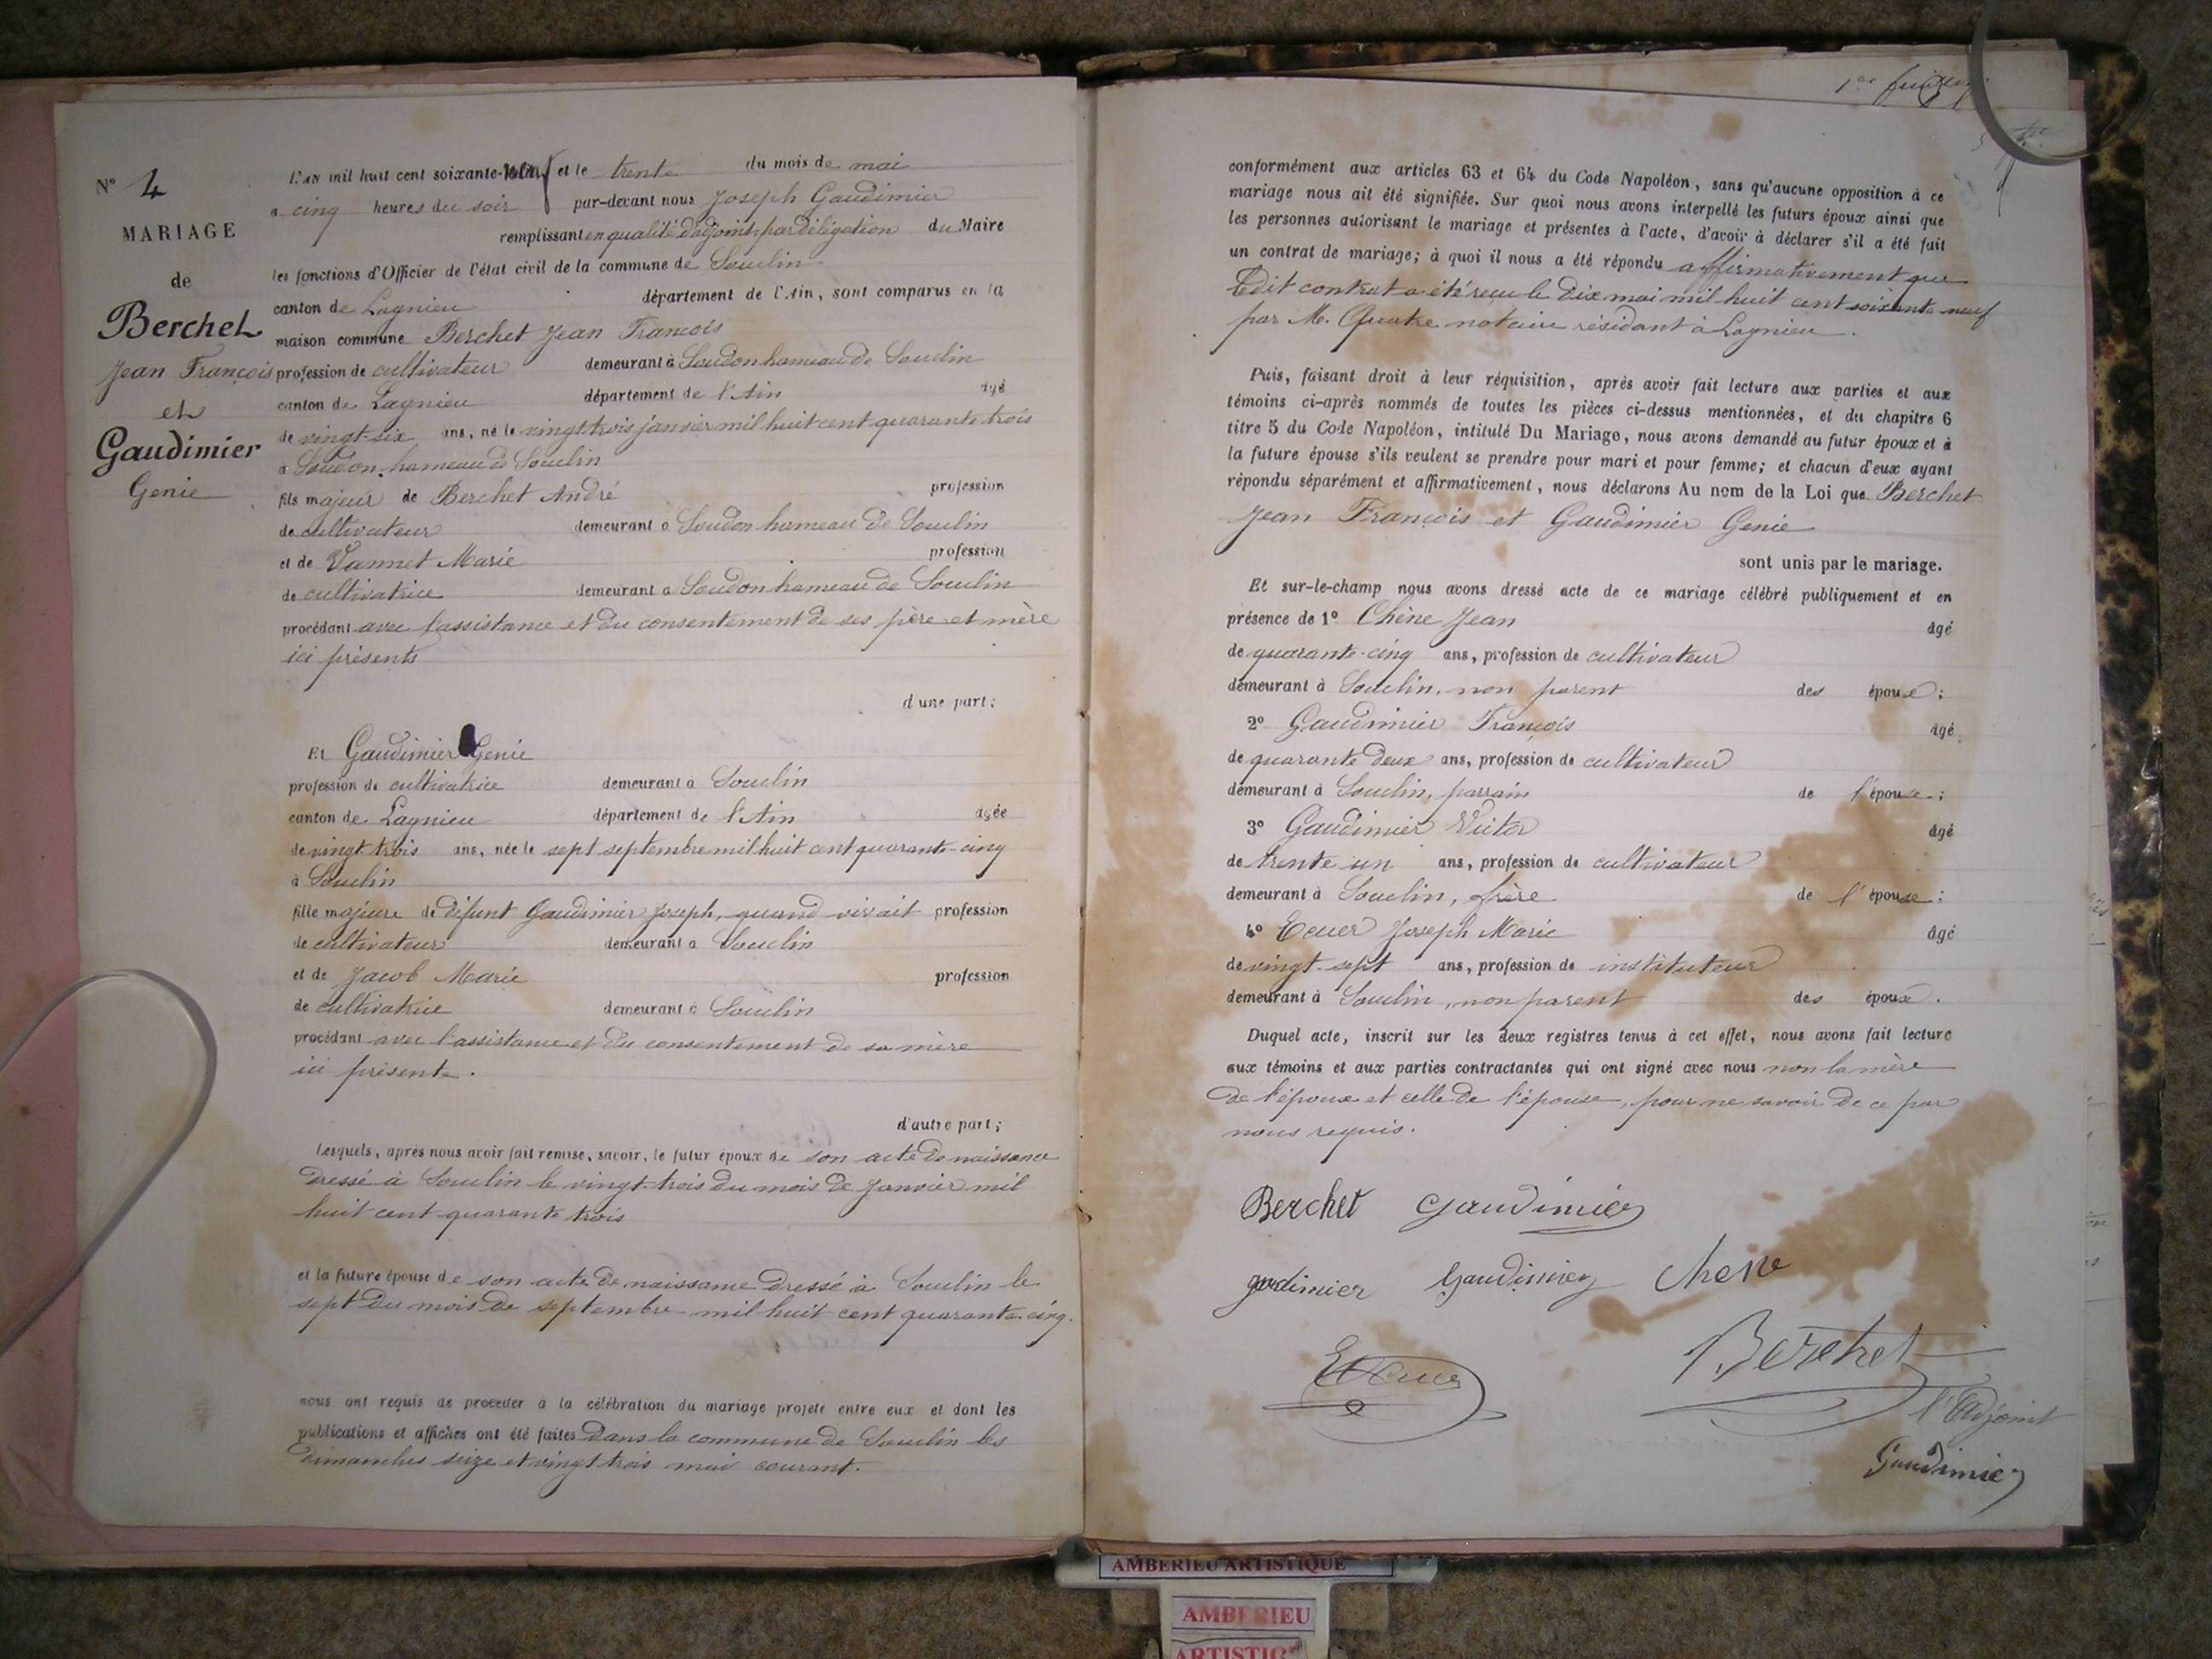 N° 4
MARIAGE
de
Berchet
Jean François
et
Gaudimier
Genie
L'AN mil huit cent soixante-neuf et le trente du mois de mai
a cinq heures du soir par-devant nous Joseph Gaudimier
remplissant en qualité d'adjoint par délégation du Maire
les fonctions d'Officier de l'état civil de la commune de Souclin
canton de Lagnieu département de l'Ain, sont comparus en la
maison commune Berchet Jean François
profession de cultivateur demeurant à Soudon hameau de Souclin
canton de Lagnieu département de l'Ain âgé
de vingt-six ans, né le vingt trois janvier mil huit cent quarante trois
à Soudon hameau de Souclin
fils majeur de Berchet André profession
de cultivateur demeurant à Soudon hameau de Souclin
et de Vannet Marie profession
de cultivatrice demeurant a Soudon hameau de Souclin
procédant avec l'assistance et du consentement de ses père et mère
ici présents
d'une part;
Et Gaudimier Genie
profession de cultivatrice demeurant a Souclin
canton de Lagnieu département de l'Ain âgée
de vingt trois ans, née le sept septembre mil huit cent quarante-cinq
à Souclin
fille majeure de défunt Gaudimier Joseph, quand vivait profession
de cultivateur demeurant a Souclin
et de Jacob Marie profession
de cultivatrice demeurant à Souclin
procédant avec l'assistance et du consentement de sa mère
ici présente.
d'autre part;
Lesquels, après nous avoir fait remise, savoir, le futur époux de son acte de naissance
dressé à Souclin le vingt-trois du mois de Janvier mil
huit cent quarante trois
et la future épouse de son acte de naissance dressé à Souclin le
sept du mois de septembre mil huit cent quarante-cinq.
nous ont requis de procéder à la célébration du mariage projeté entre eux et dont les
publications et affiches ont été faites dans la commune de Souclin les
dimanches seize et vingt trois mai courant.
conformément aux articles 63 et 64 du Code Napoléon, sans qu'aucune opposition à ce
mariage nous ait été signifiée. Sur quoi nous avons interpellé les futurs époux ainsi que
les personnes autorisant le mariage et présentes à l'acte, d'avoir à déclarer s'il a été fait
un contrat de mariage; à quoi il nous a été répondu affirmativement que
ledit contrat a été reçu le dix mai mil huit cent soixante neuf
par M. Quatre notaire résidant à Lagnieu.
Puis, faisant droit à leur réquisition, après avoir fait lecture aux parties et aux
témoins ci-après nommés de toutes les pièces ci-dessus mentionnées, et du chapitre 6
titre 5 du Code Napoléon, intitulé Du Mariage, nous avons demandé au futur époux et à
la future épouse s'ils veulent se prendre pour mari et pour femme; et chacun d'eux ayant
répondu séparément et affirmativement, nous déclarons Au nom de la Loi que Berchet
Jean François et Gaudimier Genie
sont unis par le mariage.
Et sur-le-champ nous avons dressé acte de ce mariage célébré publiquement et en
présence de 1° Chêne Jean âgé
de quarante-cinq ans, profession de cultivateur
demeurant à Souclin, non parent des époux;
2° Gaudimier François âgé
de quarante deux ans, profession de cultivateur
demeurant à Souclin, parrain de l'épouse;
3° Gaudimier Victor âgé
de trente un ans, profession de cultivateur
demeurant à Souclin, frère de l'épouse;
4° Ecuer Joseph Marie âgé
de vingt-sept ans, profession de instituteur
demeurant à Souclin, non parent des époux.
Duquel acte, inscrit sur les deux registres tenus à cet effet, nous avons fait lecture
aux témoins et aux parties contractantes qui ont signé avec nous non la mère
de l'époux et celle de l'épouse, pour ne savoir de ce par
nous requis.
Berchet Gaudimier
gaudimier Gaudimier Chene
Ecuer Berchet
l'Adjoint
Gaudimier
AMBERIEU ARTISTIQUE
AMBERIEU
ARTISTIQ